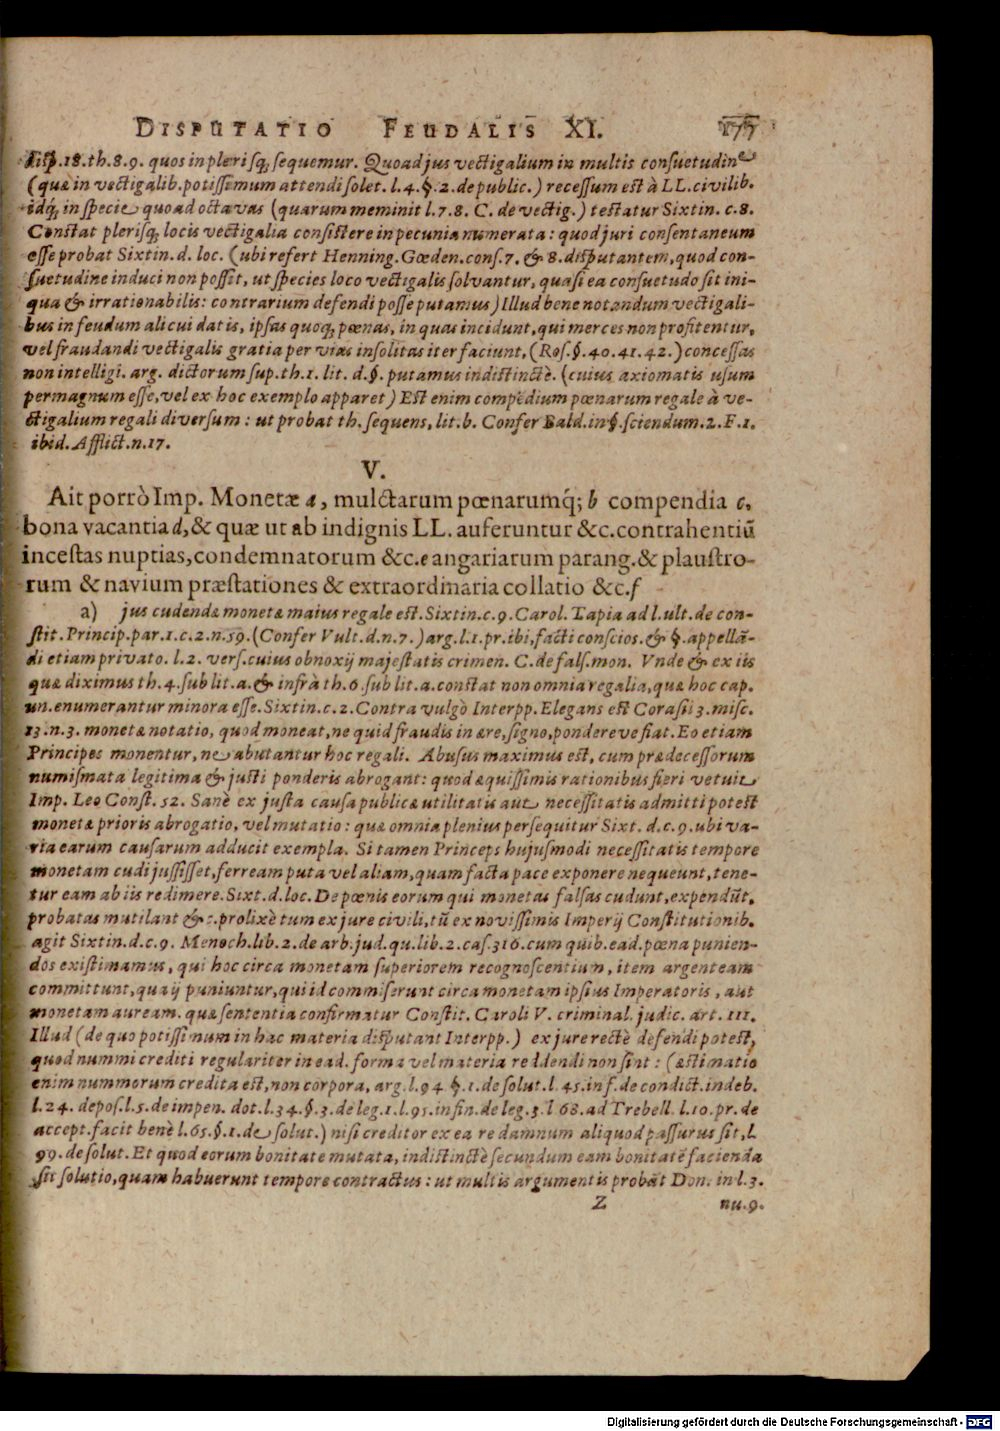 DISPUTATIO FEUDALIS XI. 177
disp.18.th.8.9. quos in plerisq́; sequemur. Quoad jus vectigalium in multis consuetudine
(quæ in vectigalib. potissimum attendi solet. l.4.§.2. de public.) recessum est à LL. civilib.
idq́; in specie quoad octavas (quarum meminit l.7.8. C. de vectig.) testatur Sixtin. c.8.
Constat plerisq́; locis vectigalia consistere in pecunia numerata: quod juri consentaneum
esse probat Sixtin. d. loc. (ubi refert Henning. Gœden. cons.7. & 8. disputantem, quod con-
suetudine induci non possit, ut species loco vectigalis solvantur, quasi ea consuetudo sit ini-
qua & irrationabilis: contrarium defendi posse putamus) Illud bene notandum vectigali-
bus in feudum alicui datis, ipsas quoq; pœnas, in quas incidunt, qui merces non profitentur,
vel fraudandi vectigalis gratia per vias insolitas iter faciunt, (Ros. §.40.41.42.) concessas
non intelligi. arg. dictorum sup. th.1. lit. d. §. putamus indistinctè. (cuius axiomatis usum
permagnum esse, vel ex hoc exemplo apparet) Est enim compēdium pœnarum regale à ve-
ctigalium regali diversum: ut probat th. sequens, lit. b. Confer Bald. in §. sciendum. 2. F. 1.
ibid. Afflict. n.17.
V.
Ait porrò Imp. Monetæ a, mulctarum pœnarumq́; b compendia c,
bona vacantia d, & quæ ut ab indignis LL. auferuntur &c. contrahentiū
incestas nuptias, condemnatorum &c. e angariarum parang. & plaustro-
rum & navium præstationes & extraordinaria collatio &c. f
a) jus cudendæ monetæ maius regale est. Sixtin. c.9. Carol. Tapia ad l. ult. de con-
stit. Princip. par.1. c.2. n.59. (Confer Vult. d. n.7.) arg. l.1. pr. ibi, facti conscios. & §. appellā-
di etiam privato. l.2. vers. cuius obnoxij majestatis crimen. C. de fals. mon. Vnde & ex iis
quæ diximus th.4. sub lit. a. & infrà th.6. sub lit. a. constat non omnia regalia, quæ hoc cap.
un. enumerantur minora esse. Sixtin. c.2. Contra vulgò Interpp. Elegans est Corasii 3. misc.
13. n.3. monetæ notatio, quod moneat, ne quid fraudis in ære, signo, pondereve fiat. Eo etiam
Principes monentur, ne abutantur hoc regali. Abusus maximus est, cum prædecessorum
numismata legitima & justi ponderis abrogant: quod æquissimis rationibus fieri vetuit
Imp. Leo Const. 52. Sanè ex justa causa publicæ utilitatis aut necessitatis admitti potest
monetæ prioris abrogatio, vel mutatio: quæ omnia plenius persequitur Sixt. d. c.9. ubi va-
ria earum causarum adducit exempla. Si tamen Princeps hujusmodi necessitatis tempore
monetam cudi jussisset, ferream puta vel aliam, quam facta pace exponere nequeunt, tene-
tur eam ab iis redimere. Sixt. d. loc. De pœnis eorum qui monetas falsas cudunt, expendūt,
probatas mutilant &c. prolixè tum ex jure civili, tū ex novissimis Imperij Constitutionib.
agit Sixtin. d. c.9. Menoch. lib.2. de arb. jud. qu. lib.2. cas.316. cum quib. ead. pœna punien-
dos existimamus, qui hoc circa monetam superiorem recognoscentium, item argenteam
committunt, qua ij puniuntur, qui id commiserunt circa monetam ipsius Imperatoris, aut
monetam auream. quæ sententia confirmatur Constit. Caroli V. criminal. judic. art. 111.
Illud (de quo potissimum in hac materia disputant Interpp.) ex jure rectè defendi potest,
quod nummi crediti regulariter in ead. forma vel materia reddendi non sint: (æstimatio
enim nummorum credita est, non corpora, arg. l.94. §.1. de solut. l.45. inf. de condict. indeb.
l.24. depos. l.5. de impen. dot. l.34. §.3. de leg.1. l.95. in fin. de leg.3. l.68. ad Trebell. l.10. pr. de
accept. facit benè l.65. §.1. de solut.) nisi creditor ex ea re damnum aliquod passurus sit, l.
99. de solut. Et quod eorum bonitate mutata, indistinctè secundum eam bonitatē facienda
sit solutio, quam habuerunt tempore contractus: ut multis argumentis probāt Don. in l.3.
Z nu.9.
Digitalisierung gefördert durch die Deutsche Forschungsgemeinschaft - DFG